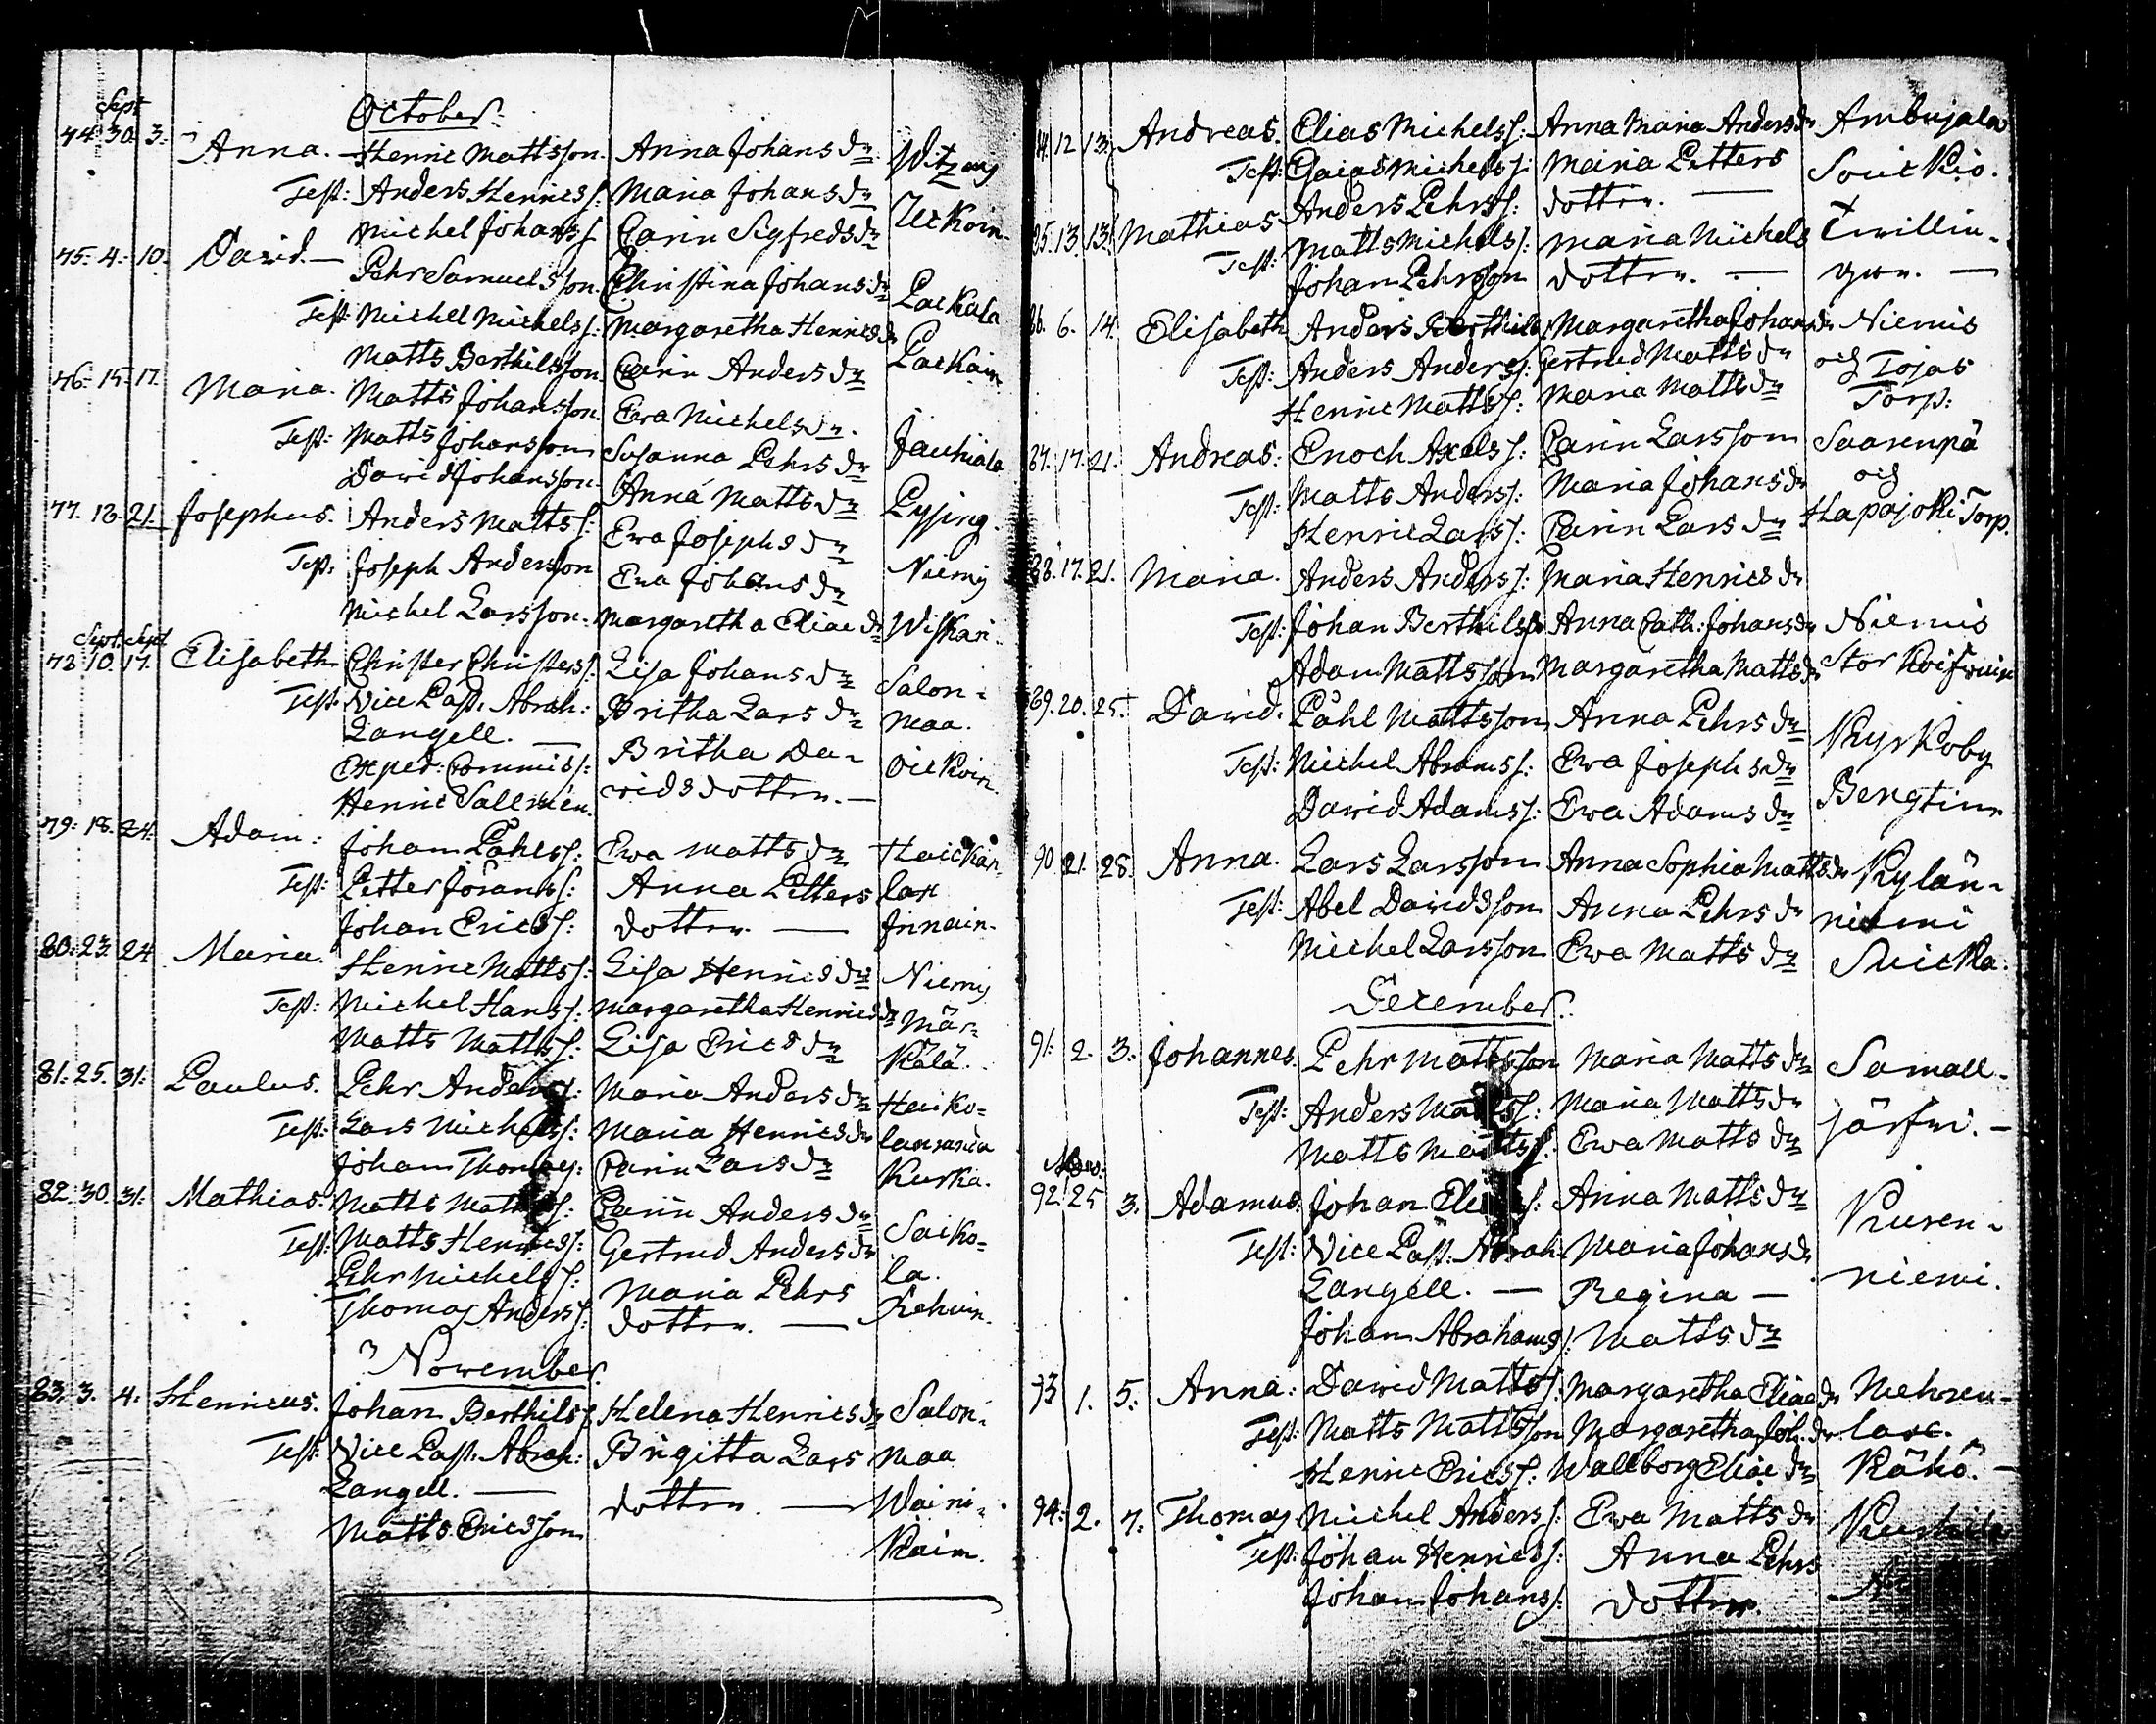 Sept
October.
74. 30. 3. Anna. Henric Mattsson. Anna Johans dr Witzary
Test: Anders Henrics s: Maria Johans dr
Michel Johans s: Carin Sigfreds dr Uckoin.
75. 4. 10. David. — Pehr Samuelsson. Christina Johans dr Lackala
Test: Michel Michels s: Margaretha Henrics dr
Matts Berthilsson Carin Anders dr Lackain.
76. 15. 17. Maria. Matts Johansson. Ewa Michels dr.
Test: Matts Johansson Susanna Pehrs dr Jauhiala
David Johansson. Anna Matts dr
77. 18. 21. Josephus. Anders Matts s: Ewa Josephs dr Pysing.
Test: Joseph Andersson Ewa Johans dr Niemy
Michel Larsson. Margaretha Eliae dr Wiskari.
Sept. Sept.
78. 10. 17. Elisabeth Christer Christers s: Lisa Johans dr Salon-
Test: Vice Past. Abrah: Britha Lars dr maa.
Langell. — Britha Da-
Exped: Commiss: vids dotter. — Oickoin.
Henric Sallmén.
79. 18. 24. Adam: Johan Påhls s: Ewa Matts dr Haickar
Test: Petter Johans s: Anna Petters lax
Johan Erics s: dotter. — Innain.
80. 23. 24. Maria. Henric Matts s: Lisa Henrics dr Niemy
Test: Michel Hans s: Margaretha Henrics dr Mär-
Matts Matts s: Lisa Erics dr kälä.
81. 25. 31. Paulus. Pehr Anders s: Maria Anders dr Heiko-
Test: Lars Michels s: Maria Henrics dr lanranda
Johan Thomæ s: Carin Lars dr Kurka.
82. 30. 31. Mathias. Matts Matts s: Carin Anders dr Saiko-
Test: Matts Henrics s: Gertrud Anders dr la.
Pehr Michels s: Maria Pehrs
Thomas Anders s: dotter. — Kehwin.
November.
83. 3. 4. Henricus. Johan Berthils s: Helena Henrics dr Salon-
Test: Vice Past. Abrah: Brigitta Lars maa
Langell. — dotter. — Waini-
Matts Ericsson kain.
84. 12. 13. Andreas. Elias Michels s: Anna Maria Anders dr Ambujala
Test: Esaias Michels s: Maria Petters Souckio.
Anders Pehrs s: dotter. —
85. 13. 13. Mathias Matts Michels s: Maria Michels Twillin-
Test: Johan Pehrsson dotter. — gar. —
86. 6. 14. Elisabeth Anders Berthils s: Margaretha Johans dr Niemis
Test: Anders Anders s: Gertrud Matts dr och Tojas
Henric Matts s: Maria Matts dr Torp:
87. 17. 21. Andreas: Enoch Axels s: Carin Larsson Saarenpä
Test: Matts Anders s: Maria Johans dr och
Henric Lars s: Carin Lars dr Hapajoki Torp.
88. 17. 21. Maria. Anders Anders s: Maria Henrics dr
Test: Johan Berthils s: Anna Cath: Johans dr Niemis
Adam Mattsson Margaretha Matts dr Stor
89. 20. 25. David. Påhl Mattsson Anna Pehrs dr Kyrkoby
Test: Michel Abrams s: Ewa Josephs dr
David Adams s: Ewa Adams dr Bengtinr
90. 21. 28. Anna. Lars Larsson Anna Sophia Matts dr Kylän-
Test: Abel Davidsson Anna Pehrs dr niemi
Michel Larsson Ewa Matts dr Suickla.
December.
91. 2. 3. Johannes. Pehr Mattsson Maria Matts dr Samall-
Test: Anders Matts s: Maria Matts dr järfwi. —
Matts Matts s: Ewa Matts dr
Nov.
92. 25 3. Adamus. Johan Elias s: Anna Matts dr Kuren-
Test: Vice Past. Abrah Maria Johans dr niemi.
Langell. — Regina —
Johan Abrahams s: Matts dr
93 1. 5. Anna: David Matts s: Margaretha Eliae dr Mehren-
Test: Matts Mattsson Margaretha Joh. dr. lax.
Henric Erics s: Wallborg Eliae dr Kähö. —
94. 2. 7. Thomas Michel Anders s: Ewa Matts dr
Test: Johan Henrics s: Anna Pehrs
Johan Johans s: dotter.